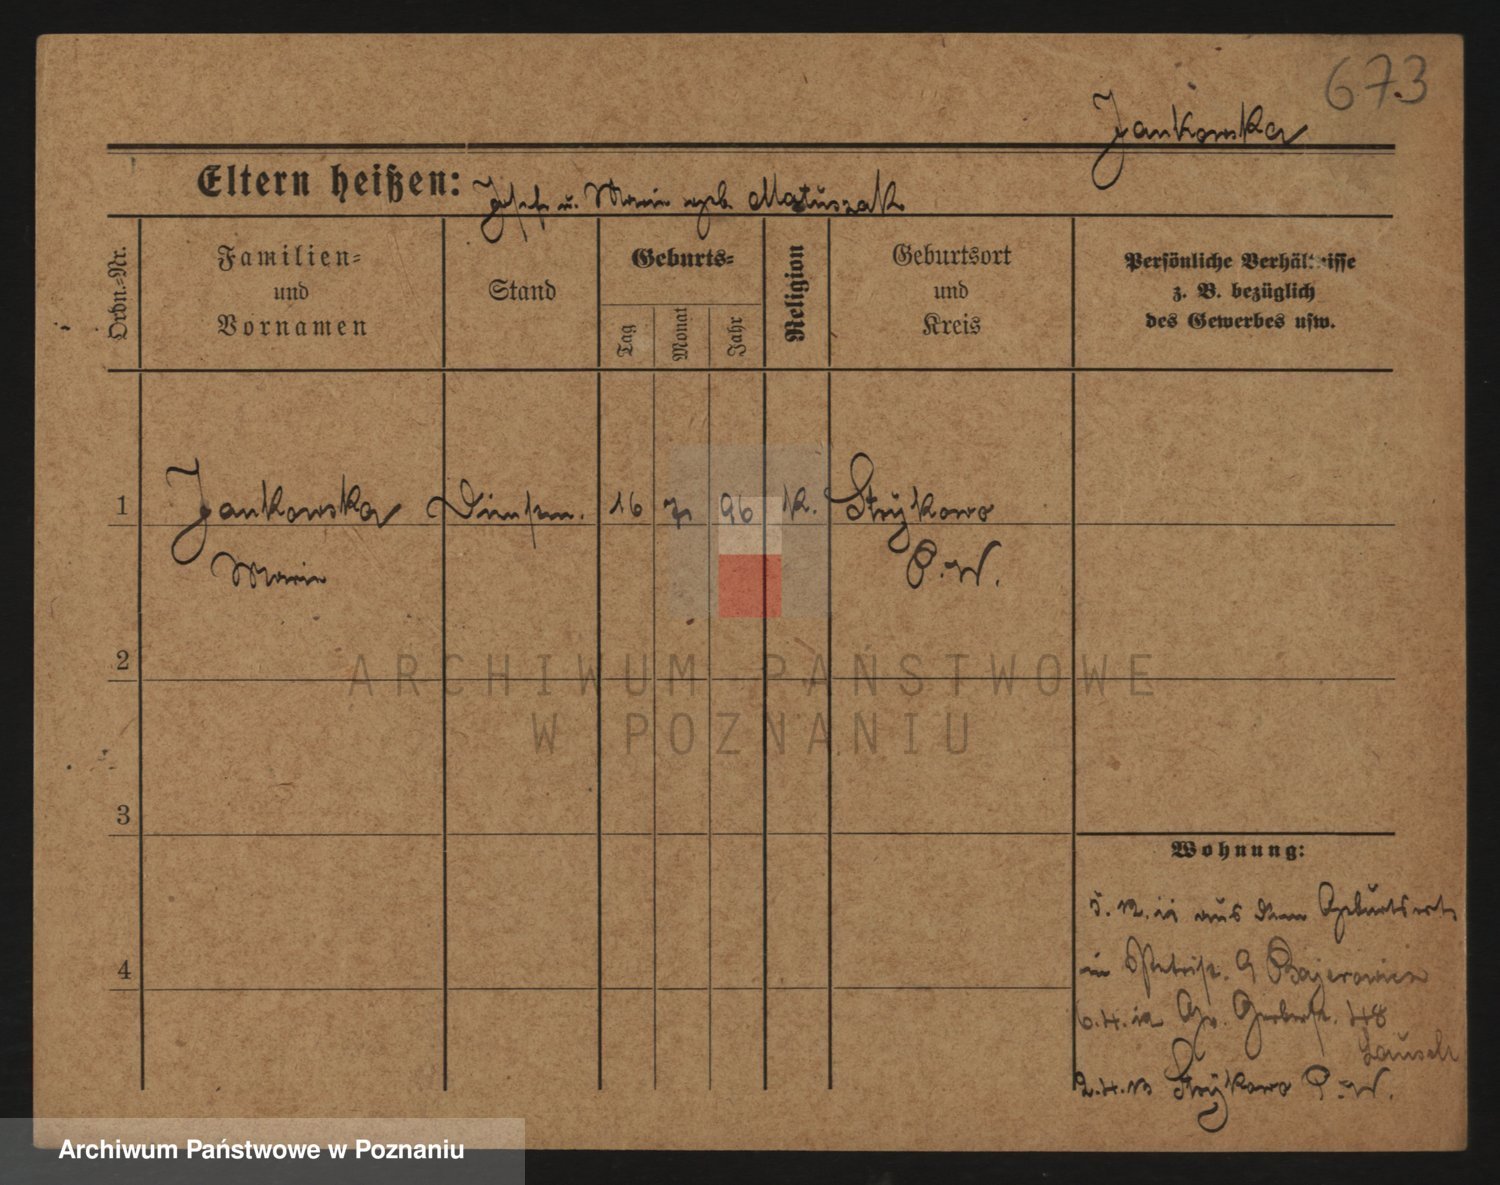 673
Jankowska
Eltern heißen: Josef u. Marie geb. Matuszak
Ordn.-Nr.
Familien-
und
Vornamen
Stand
Geburts-
Tag
Monat
Jahr
Religion
Geburtsort
und
Kreis
Persönliche Verhältnisse
z. B. bezüglich
des Gewerbes usw.
1 Jankowska Dienstm. 16 7 96 K. Strykowo
Marie P. W.
2
ARCHIWUM PAŃSTWOWE
W POZNANIU
3
Wohnung:
5. 12. 11 aus dem Geburtsort
in Petristr. 9 Bajerowicz
6. 4. 12 Gr. Gerberstr. 48
Lausch
2. 4. 13 Strykowo P. W.
4
Archiwum Państwowe w Poznaniu